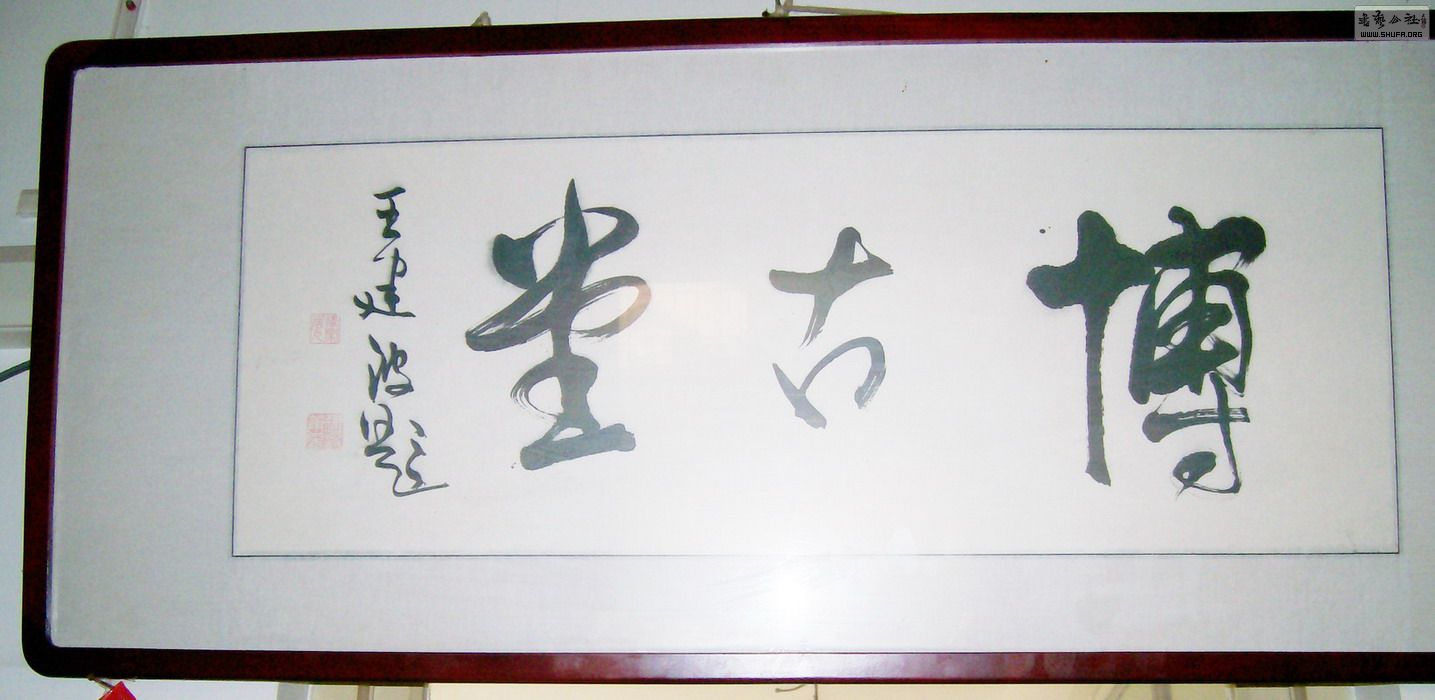 博古堂
王建波题
書藝公社
WWW.SHUFA.ORG